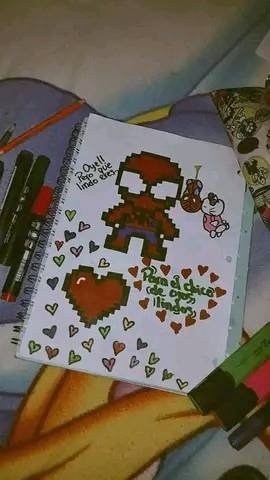 Oye!!
Pero que
lindo eres.
Para el chico
de ojos
llindos